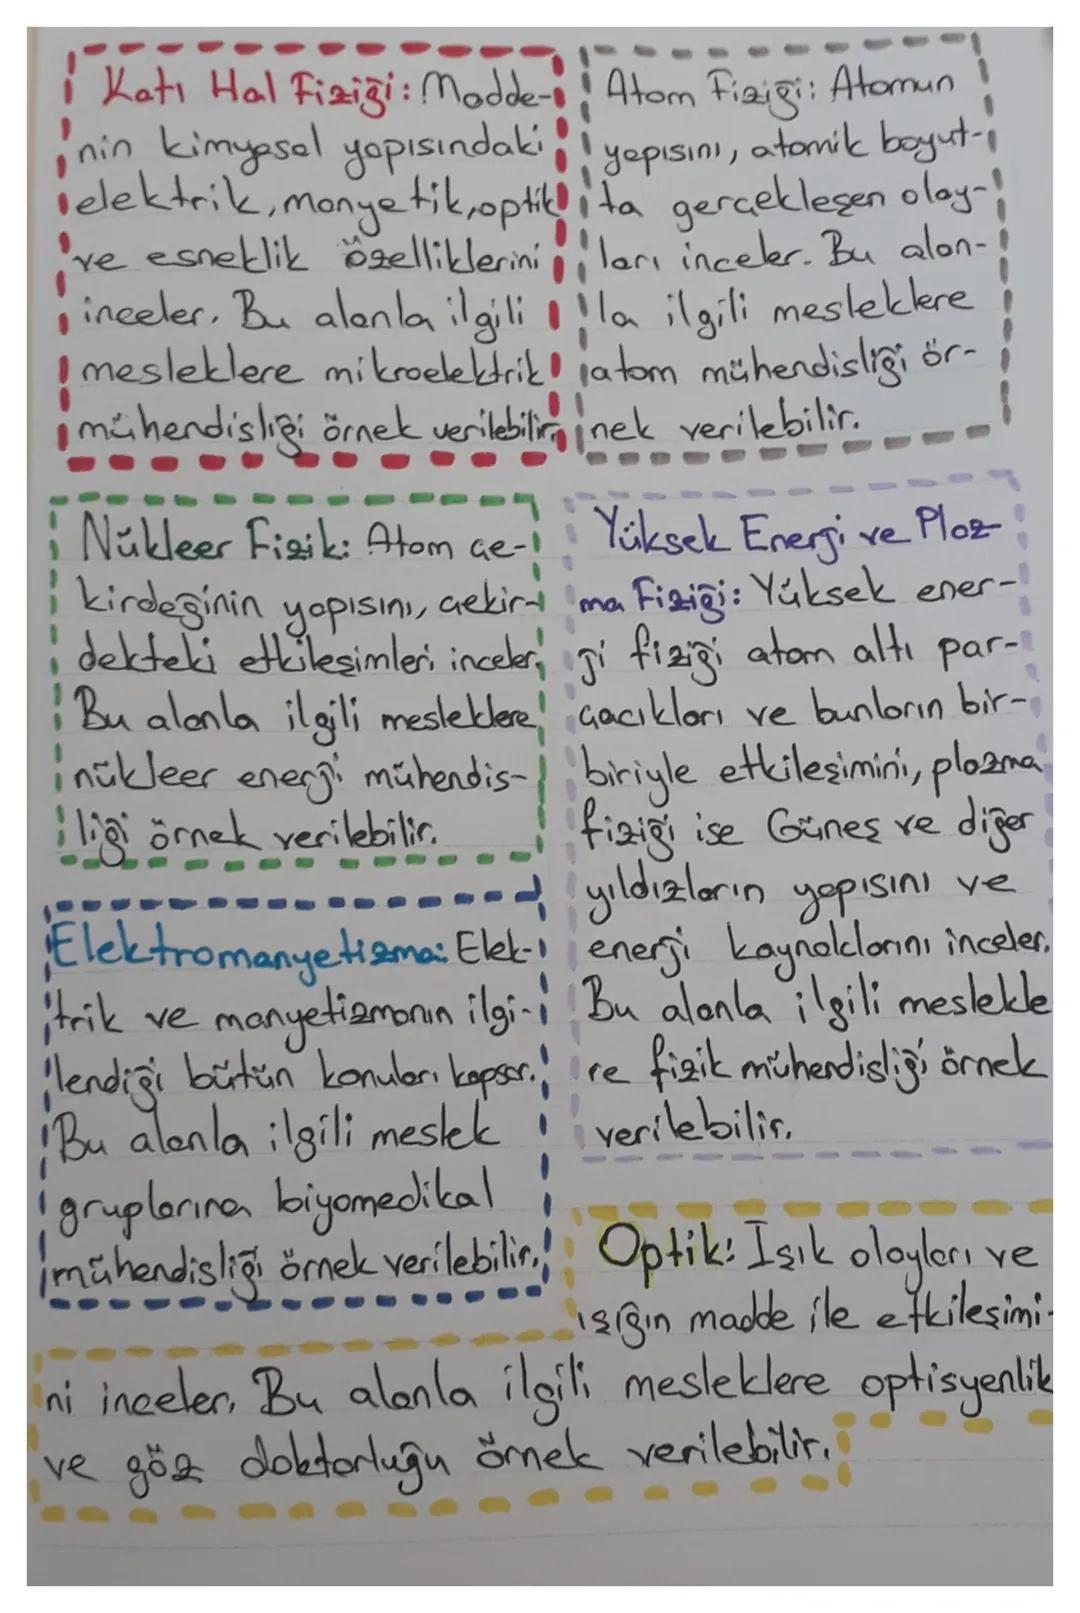 Katı Hal Fiziği: Madde-
nin kimyasal yapısındaki
elektrik, manyetik, optik
ve esneklik özelliklerini
inceler. Bu alanla ilgili
mesleklere mikroelektrik
mühendisliği örnek verilebilir.
Atom Fiziği: Atomun
yapısını, atomik boyut-
ta gerçekleşen olay-
ları inceler. Bu alan-
la ilgili mesleklere
atom mühendisliği ör-
nek verilebilir.
Nükleer Fizik: Atom çe-
kirdeğinin yapısını, çekir-
dekteki etkileşimleri inceler.
Bu alanla ilgili mesleklere
nükleer energi mühendis-
liği örnek verilebilir.
Yüksek Energi ve Plaz-
ma Fiziği: Yüksek ener-
ji fiziği atom altı par-
çacıkları ve bunların bir-
biriyle etkileşimini, plazma
fiziği ise Güneş ve diğer
yıldızların yapısını ve
enerji kaynaklarını inceler.
Bu alanla ilgili meslekle
re fizik mühendisliği örnek
verilebilir.
Elektromanyetizma: Elek-
trik ve manyetizmanın ilgi-
lendiği bütün konuları kapsar.
Bu alanla ilgili meslek
gruplarına biyomedikal
mühendisliği örnek verilebilir.
Optik: Işık olayları ve
ışığın madde ile etkileşimi-
ni inceler. Bu alanla ilgili mesleklere optisyenlik
ve göz doktorluğu örnek verilebilir.